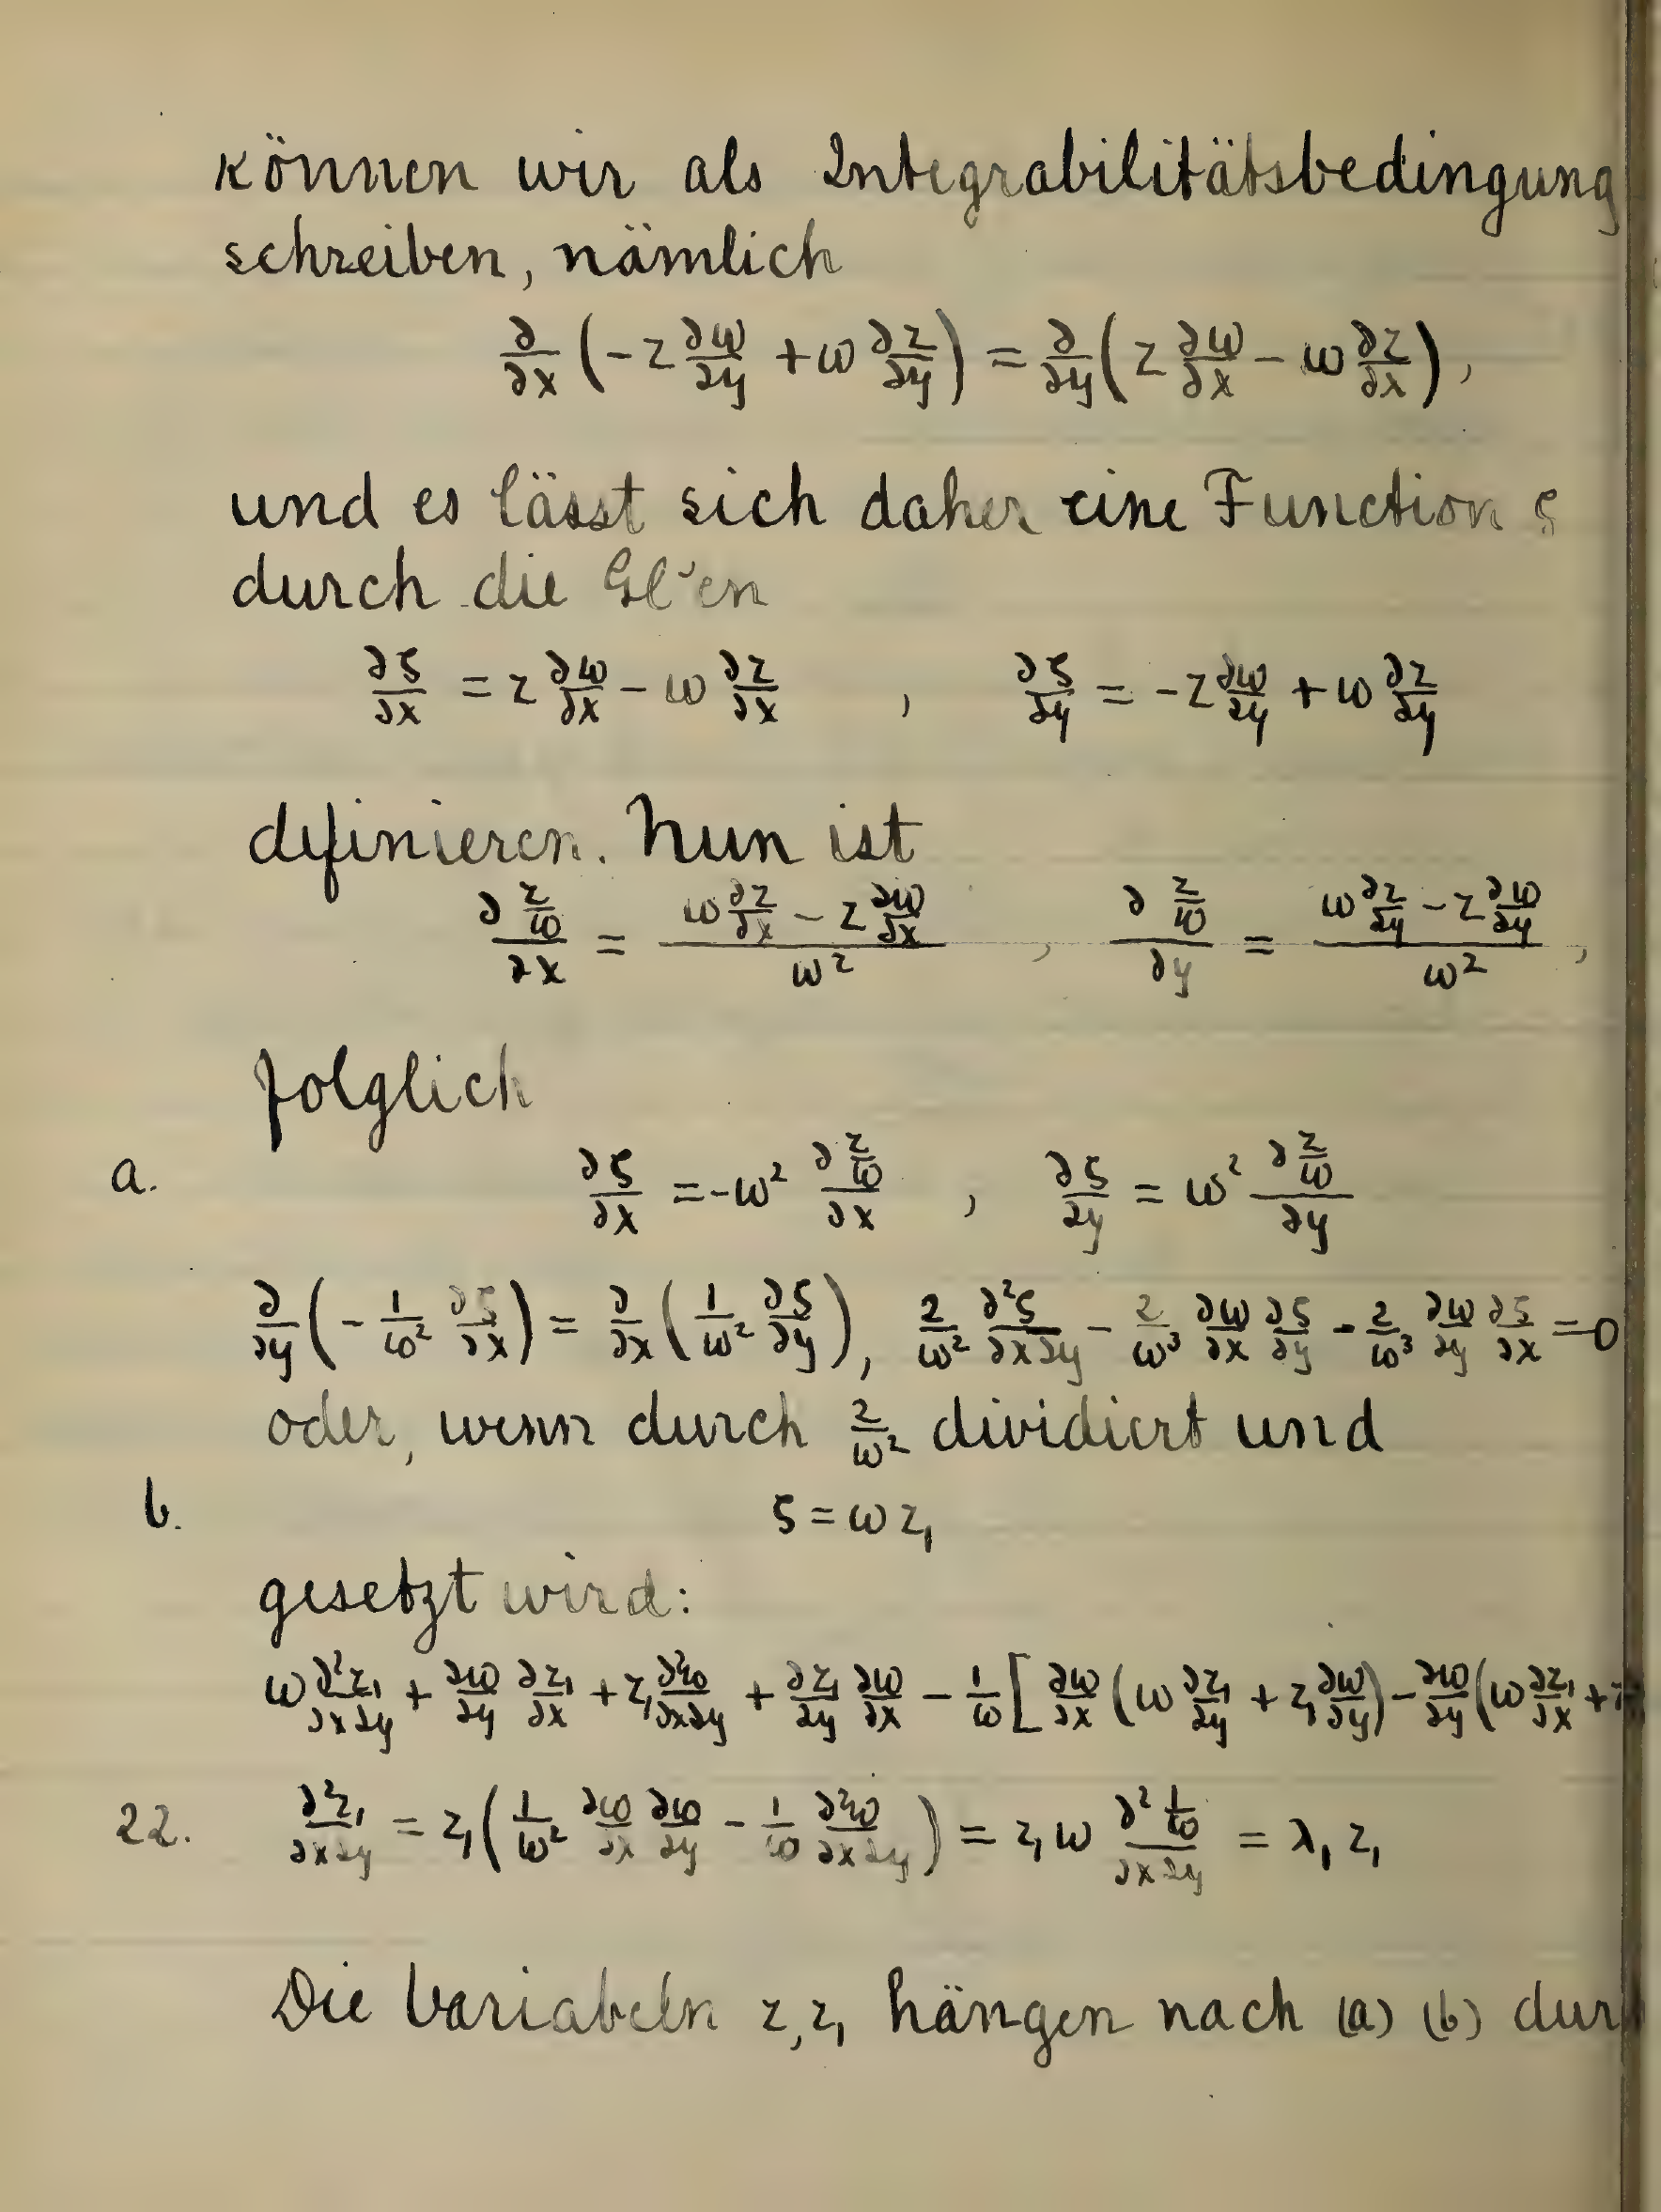 können wir als Integrabilitätsbedingung
schreiben, nämlich
∂/∂x (-z ∂ω/∂y + ω ∂z/∂y) = ∂/∂y (z ∂ω/∂x - ω ∂z/∂x),
und es lässt sich daher eine Function ζ
durch die Gl'en
∂ζ/∂x = z ∂ω/∂x - ω ∂z/∂x , ∂ζ/∂y = -z ∂ω/∂y + ω ∂z/∂y
definieren. Nun ist
∂(z/ω)/∂x = (ω ∂z/∂x - z ∂ω/∂x)/ω² , ∂(z/ω)/∂y = (ω ∂z/∂y - z ∂ω/∂y)/ω² ,
folglich
a. ∂ζ/∂x = -ω² ∂(z/ω)/∂x , ∂ζ/∂y = ω² ∂(z/ω)/∂y
∂/∂y (-1/ω² ∂ζ/∂x) = ∂/∂x (1/ω² ∂ζ/∂y), 2/ω² ∂²ζ/∂x∂y - 2/ω³ ∂ω/∂x ∂ζ/∂y - 2/ω³ ∂ω/∂y ∂ζ/∂x = 0
oder, wenn durch 2/ω² dividiert und
b. ζ = ω z₁
gesetzt wird:
ω ∂²z₁/∂x∂y + ∂ω/∂y ∂z₁/∂x + z₁ ∂²ω/∂x∂y + ∂z₁/∂y ∂ω/∂x - 1/ω [∂ω/∂x (ω ∂z₁/∂y + z₁ ∂ω/∂y) - ∂ω/∂y (ω ∂z₁/∂x +
22. ∂²z₁/∂x∂y = z₁ (1/ω² ∂ω/∂x ∂ω/∂y - 1/ω ∂²ω/∂x∂y) = z₁ ω ∂²(1/ω)/∂x∂y = λ₁ z₁
Die Variabeln z, z₁ hängen nach (a) (b) dur